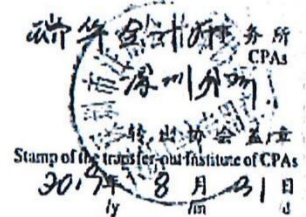 瑞华会计师事务所
CPAs
深圳分所
转出协会盖章
Stamp of the transfer-out Institute of CPAs
年 8 月 31 日
/y /m /d